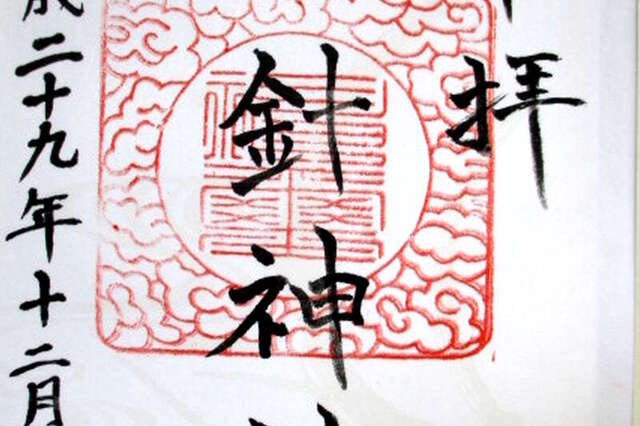 拝
針神
成二十九年十二月